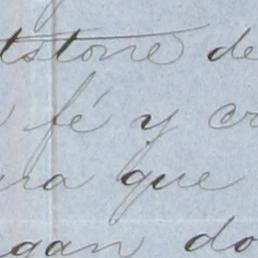 tstone de
fé y cr
ra que
gan do